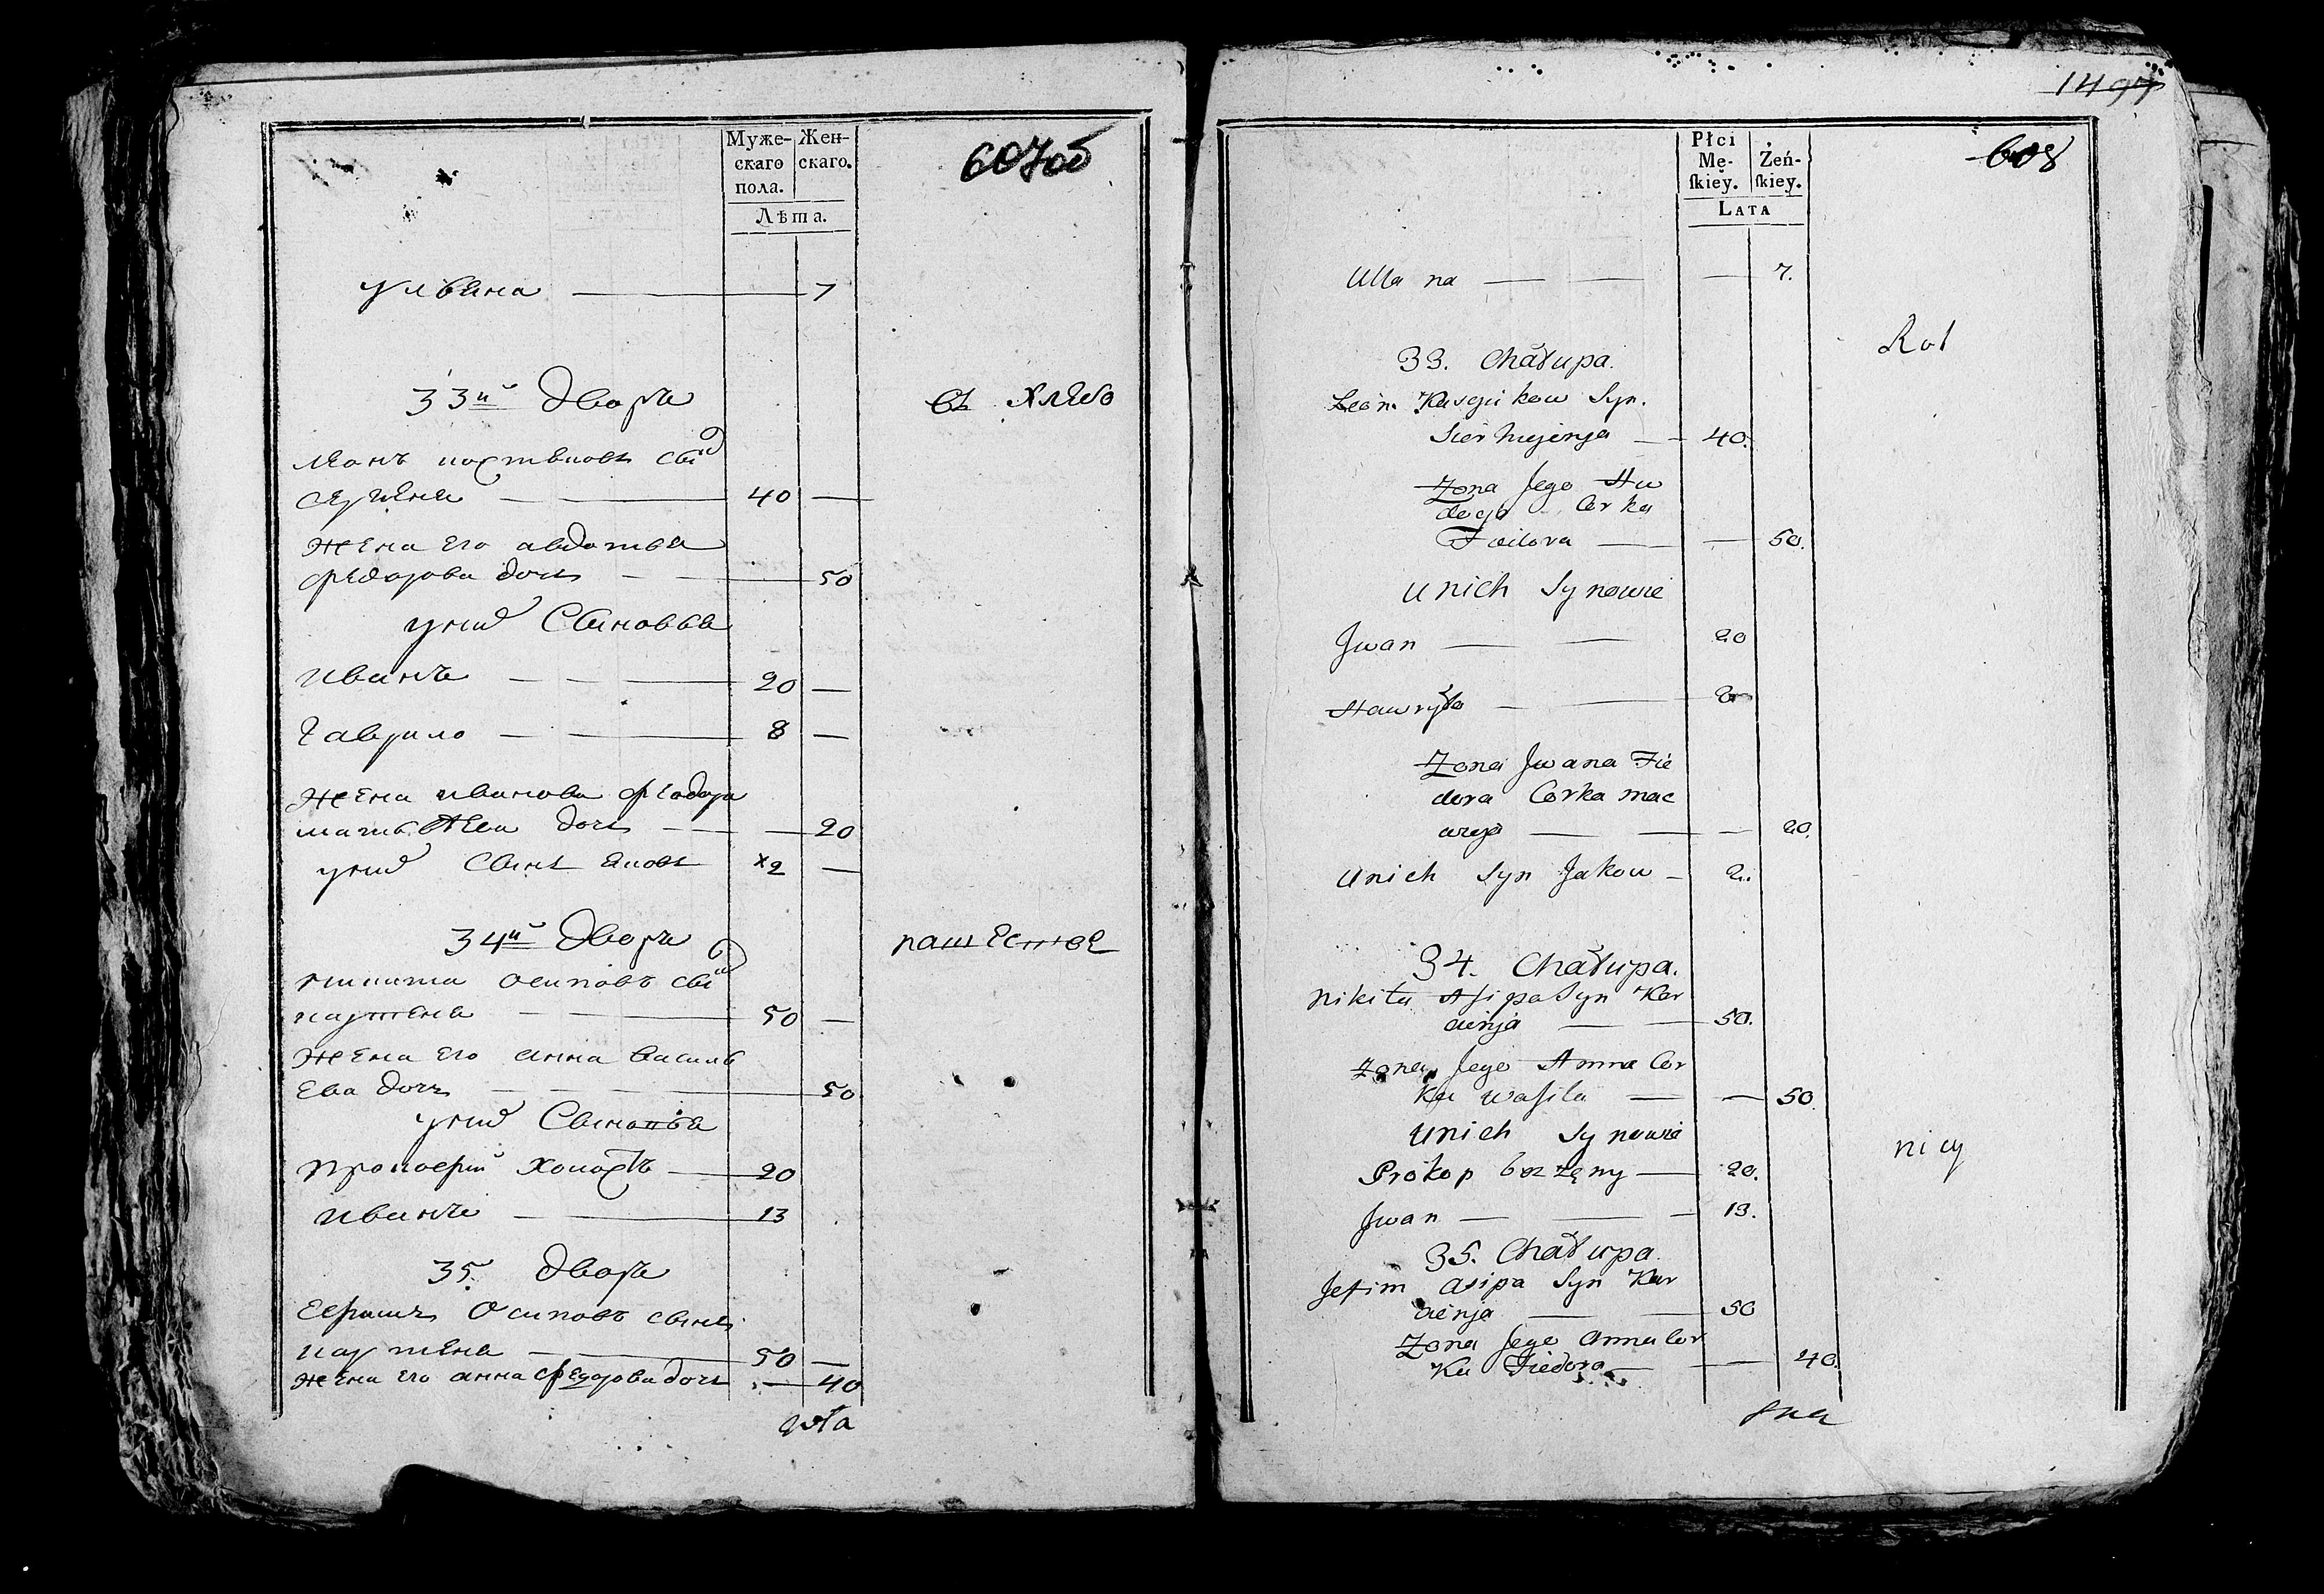 Муже-
скаго
пола.
Жен-
скаго.
Лѣта.
607об
Ульяна — 7
33й Дворъ
въ
Леонъ
— 40 —
Жена Его авдотья
федорова дочь — 50
у них Сыновья
Иванъ — 20 —
Гаврило — 8 —
Жена иванова феодора
дочь — 20
у них Сынъ Яковъ 2 —
34й Дворъ
никита осиповъ сынъ
— 50 —
Жена Его анна василь
Ева дочь — 50
у них Сыновья
прокофий холостъ — 20
иванъ — 13
35. Дворъ
Ефимъ Осиповъ сынъ
— 50 —
Жена Его анна федорова дочь — 40
1497
608
Płci
Mę-
ſkiey.
Żeń-
ſkiey.
Lata
Ulla na — — — 7.
33. Chałupa.
Leon Syn.
— 40.
Zona Jego Au
docja Corka
Fiedora — — 50.
U nich Synowie
Jwan — — 20
Hawryło — —
Zona Jwana Fie
dora Corka mac
wieja — — — 20.
U nich Syn Jakow — 2.
34. Chałupa.
Nikita Asipa Syn Kar
cienja — — 50.
Zona Jego Anna Cor
ka Waſila — — 50.
U nich Synowie
Prokop bez żęny — 20.
Jwan — — — 13.
35. Chałupa.
Jefim Asipa Syn Kar
cienja — — 50
Zona Jego Anna Cor
ka Fiedora — — 40.